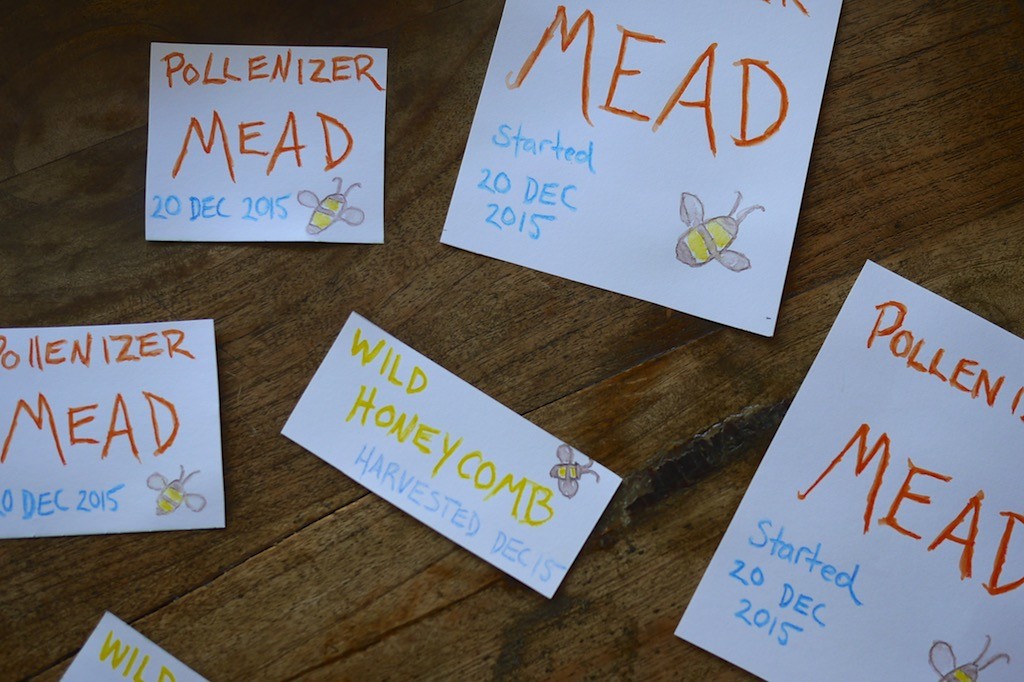 POLLENIZER
MEAD
20 DEC 2015
MEAD
Started
20 DEC
2015
POLLENIZER
MEAD
20 DEC 2015
WILD
HONEYCOMB
HARVESTED DEC 15
POLLENIZ
MEAD
Started
20 DEC
2015
WILD